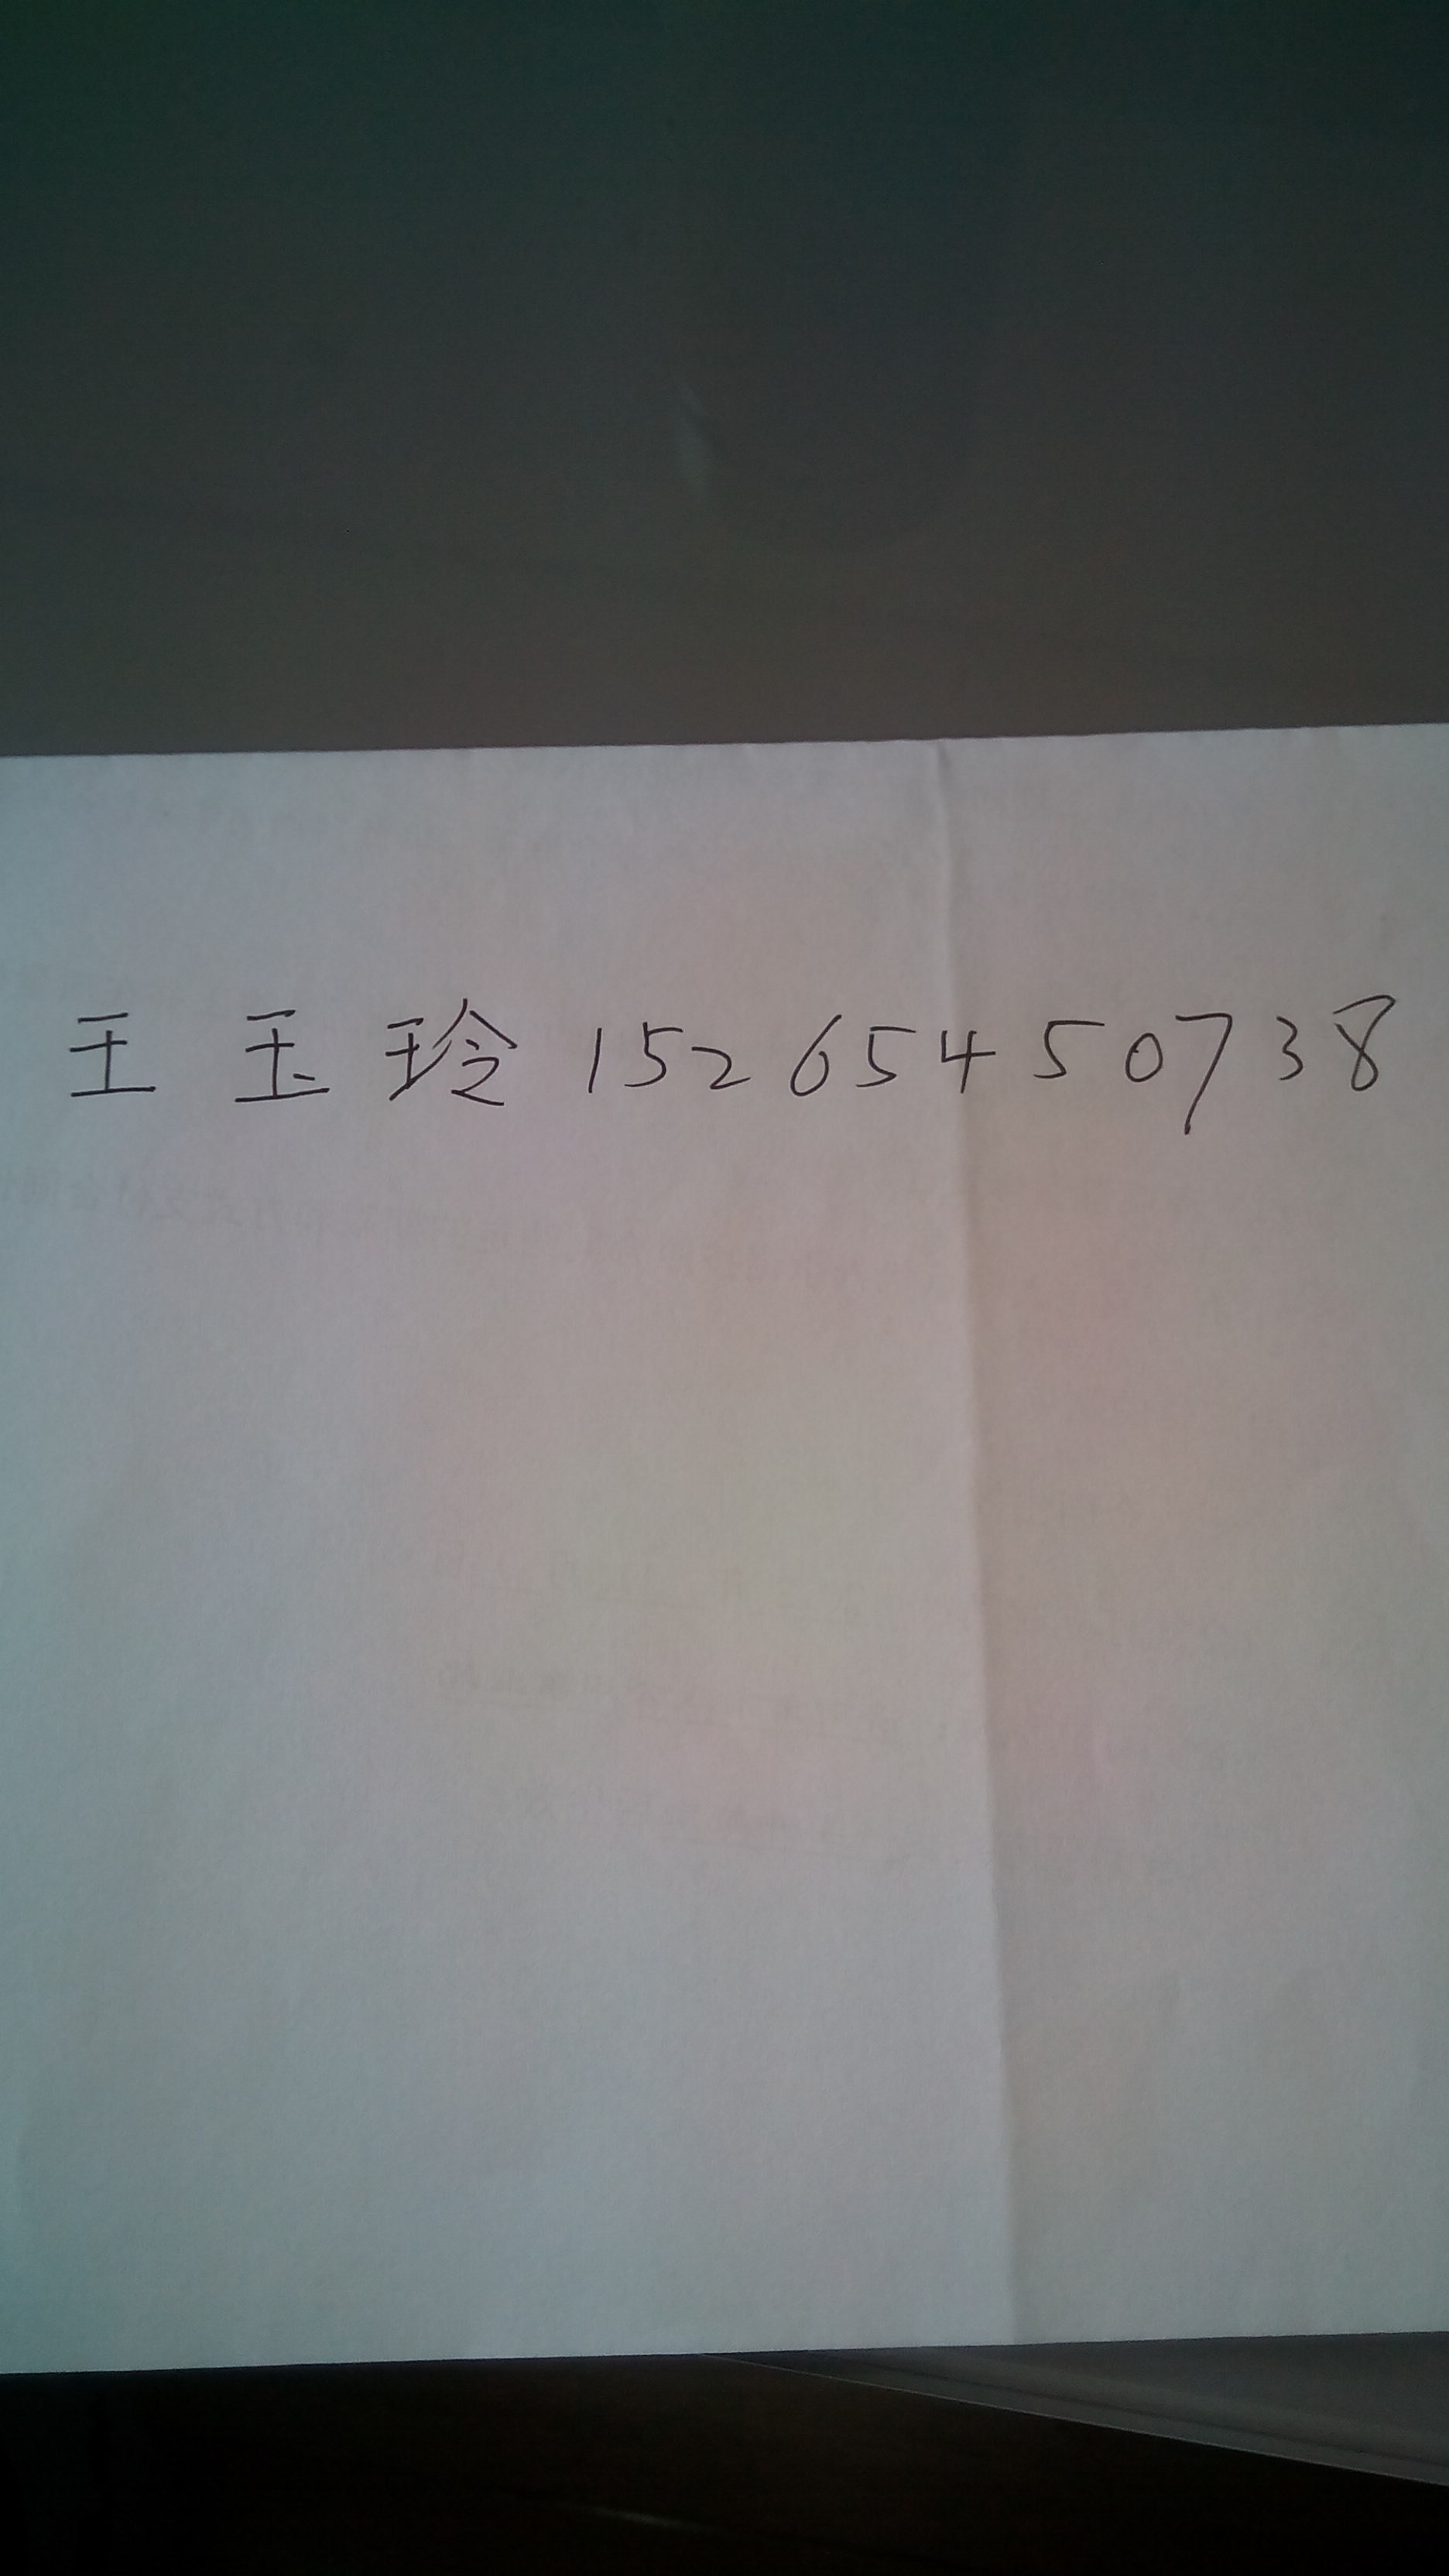 王玉玲 15265450738